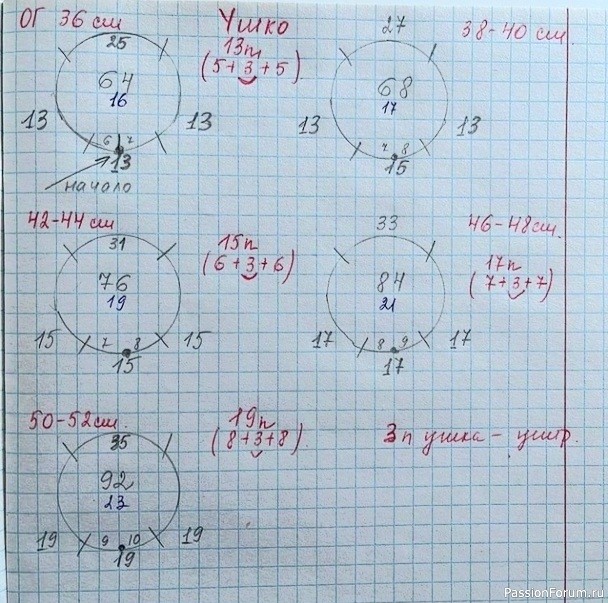 ОГ 36 см
Ушко
13п
(5+3+5)
25
64
16
13
13
6 7
13
начало
38-40 см.
27
68
17
13
13
7 8
15
42-44 см
15п
(6+3+6)
31
76
19
15
15
7 8
15
46-48 см.
17п
(7+3+7)
33
84
21
17
17
8 9
17
50-52 см.
19п
(8+3+8)
35
92
23
19
19
9 10
19
3п ушка -
PassionForum.ru